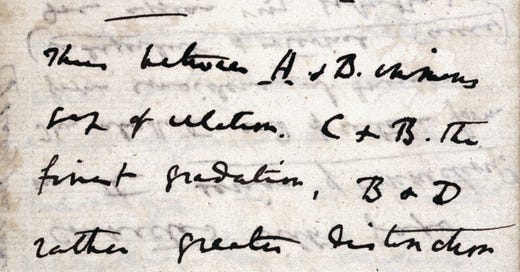 Thus between A & B. immens
gap of relation. C & B. the
finest gradation, B & D
rather greater distinction